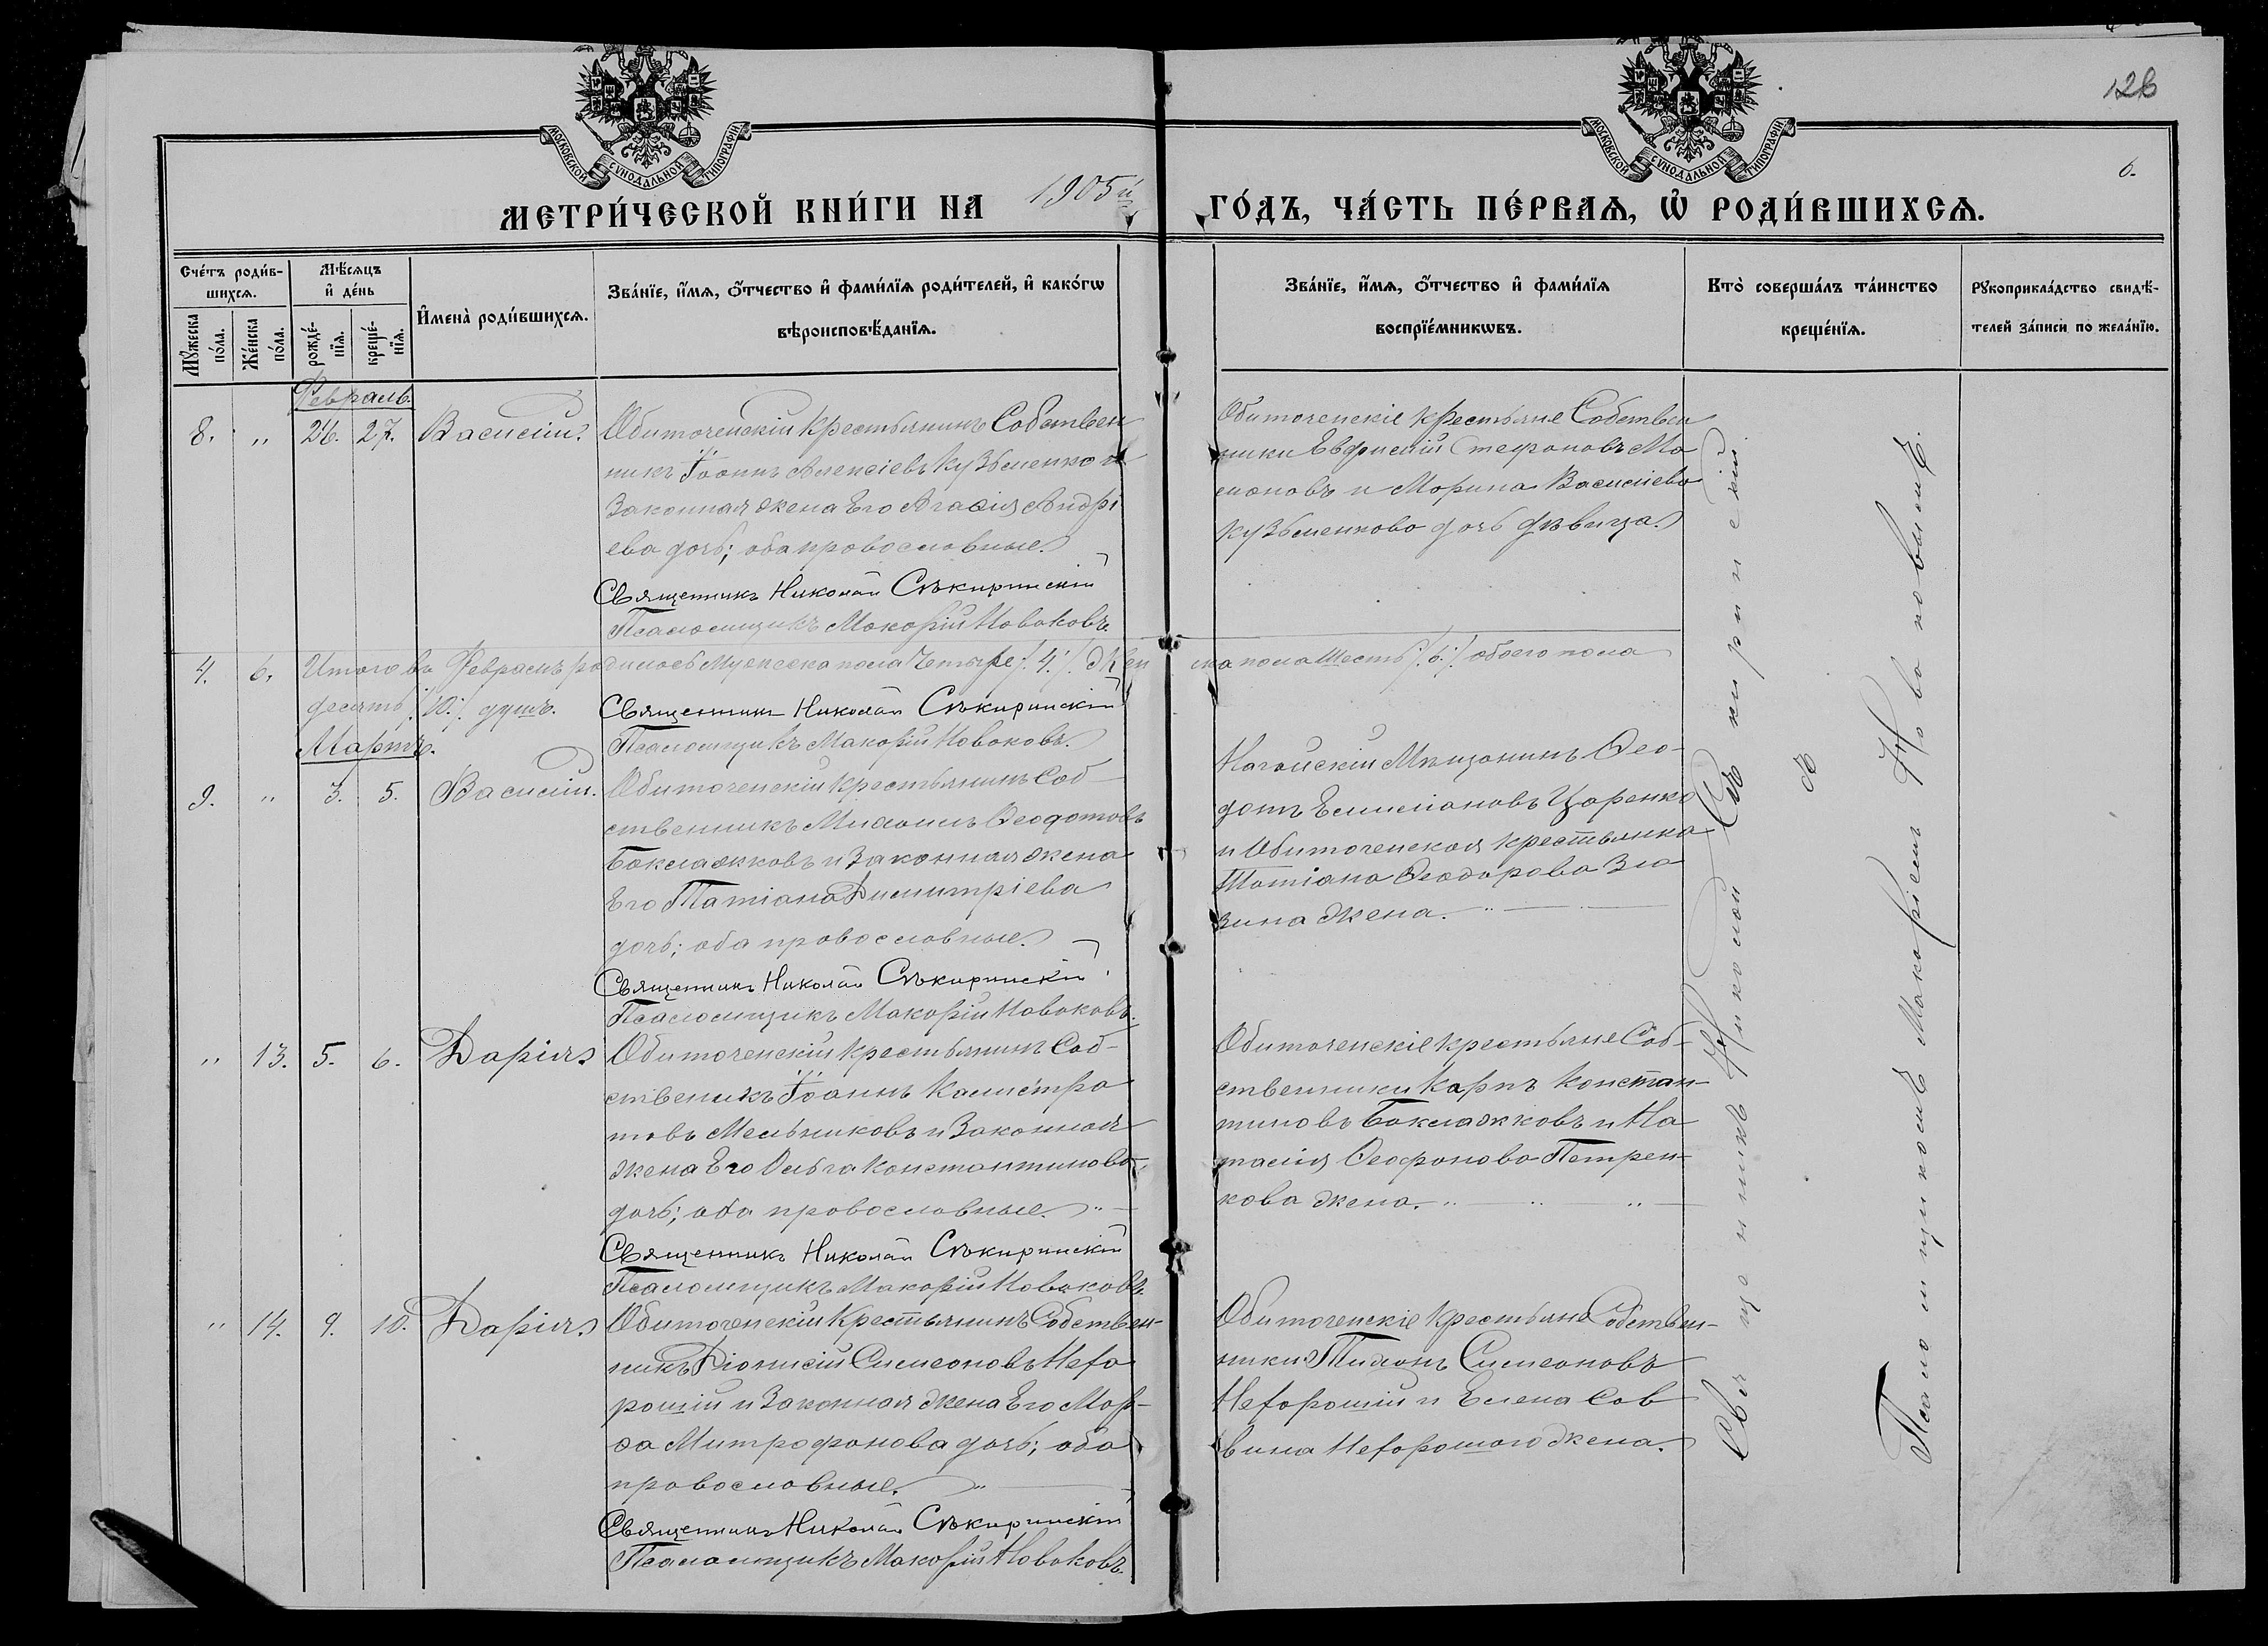 128
6.
МОСКОВСКОЙ СУНОДАЛЬНОЙ ТИПОГРАФІИ
МОСКОВСКОЙ СУНОДАЛЬНОЙ ТИПОГРАФІИ
МЕТРИ́ЧЕСКОЙ КНИ́ГИ НА 1905й ГО́ДЪ, ЧА́СТЬ ПЕ́РВАѦ, Ѡ҆ РОДИ́ВШИХСѦ.
Сче́тъ роди́в-
шихсѧ.
Мꙋ́жеска
по́ла.
Же́нска
по́ла.
Мѣ́сѧцъ
и҆ де́нь
рожде́-
нїѧ.
креще́-
нїѧ.
И҆мена̀ роди́вшихсѧ.
Зва́нїе, и҆́мѧ, ѻ҆́тчество и҆ фами́лїѧ роди́телей, и҆ како́гѡ
вѣроисповѣ́данїѧ.
Зва́нїе, и҆́мѧ, ѻ҆́тчество и҆ фами́лїѧ
воспрїе́мникѡвъ.
Кто̀ соверша́лъ та́инство
креще́нїѧ.
Рꙋкоприкла́дство свидѣ́-
телей за́писи по жела́нїю.
Февраль.
8. „ 26. 27. Василій.
Обиточенскій крестьянинъ Собствен
никъ Іоаннъ Алексіевъ Кузьменко и
Законная жена Его Агаѳія Андрі
ева дочь; оба православные.
Священникъ Николай Сѣкиринскій
Псаломщикъ Макарій Новаковъ.
Обиточенскіе крестьяне Собствен
ники Евфимій Стефановъ Ма
моновъ и Марина Василіева
Кузьменкова дочь дѣвица.
4. 6. Итого въ Февралѣ родилось Мужеска пола Четыре /.4./. Жен ска пола Шесть /.6./ обоего пола
десять /.10./. душъ.
Священникъ Николай Сѣкиринскій
Псаломщикъ Макарій Новаковъ.
Мартъ.
9. „ 3. 5. Василій.
Обиточенскій крестьянинъ Соб-
ственникъ Михаилъ Ѳеодотовъ
Баклажковъ и Законная жена
Его Татіана Димитріева
дочь; оба православные.
Священникъ Николай Сѣкиринскій
Псаломщикъ Макарій Новаковъ.
Ногайскій Мѣщанинъ Ѳео-
дотъ Емиліановъ Царенко
и Обиточенская крестьянка
Татіана Ѳеодорова Зла
зина жена.
„ 13. 5. 6. Дарія
Обиточенскій крестьянинъ Соб-
ственикъ Іоаннъ Калистра
товъ Мельниковъ и Законная
жена Его Ольга Константинова
дочь; оба православные.
Священникъ Николай Сѣкиринскій
Псаломщикъ Макарій Новаковъ.
Обиточенскіе крестьяне Соб-
ственники Карпъ Констан-
тиновъ Баклажковъ и На
талія Ѳеофанова Петрен-
кова жена.
„ 14. 9. 10. Дарія
Обиточенскій Крестьянинъ Собствен-
никъ Діонисій Симеоновъ Нехо
рошій и Законная жена Его Мар-
ѳа Митрофанова дочь; оба
православные.
Священникъ Николай Сѣкиринскій
Псаломщикъ Макарій Новаковъ.
Обиточенскіе крестьяне Собствен-
ники Тихонъ Симеоновъ
Нехорошій и Елена Сав
вина Нехорошого жена.
Священникъ Николай Сѣкиринскій
съ
Псаломщикомъ Макаріемъ Новаковымъ.